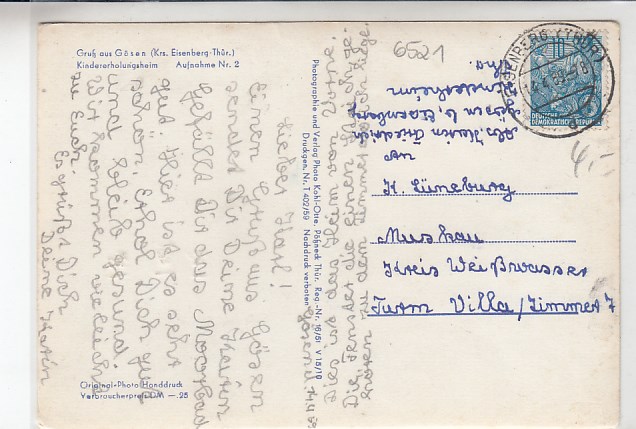 Gruß aus Gösen (Krs. Eisenberg-Thür.)
Kindererholungsheim Aufnahme Nr. 2
Gösen d. 14.4.59
Lieber Karl!
Einen Gruß aus Gösen
sendet Dir Deine Katrin
Gefällt Dir das Moorbad
gut. Hier ist es sehr
schön. Erhol Dich gut
und bleib gesund.
Wir kommen vielleicht
zu Euch.
Es grüßt Dich
Deine Katrin
Dies ist das Heim von Vorne.
Die Fenster die einen Strich
zu dem Zimmer wo ich liege.
Original-Photo Handdruck
Verbraucherpreis DM —.25
Photographie und Verlag Photo Kohl-Otte, Pößneck Thür. Reg.-Nr. 16/61 V 15/19
Druckgen. Nr. T 402/59 Nachdruck verboten
6521
Abs. Katrin Friedrich
Gösen b. Eisenberg
Kinderheim
Thür.
EISENBERG (THÜR)
10
DEUTSCHE
DEMOKRATISCHE REPUBLIK
4,-
An
K. Lüneburg
Muskau
Kreis Weißwasser
Turm Villa/Zimmer 7